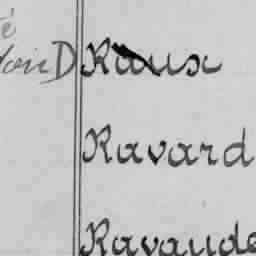 é
Voir D Raux
Ravard
Ravaude